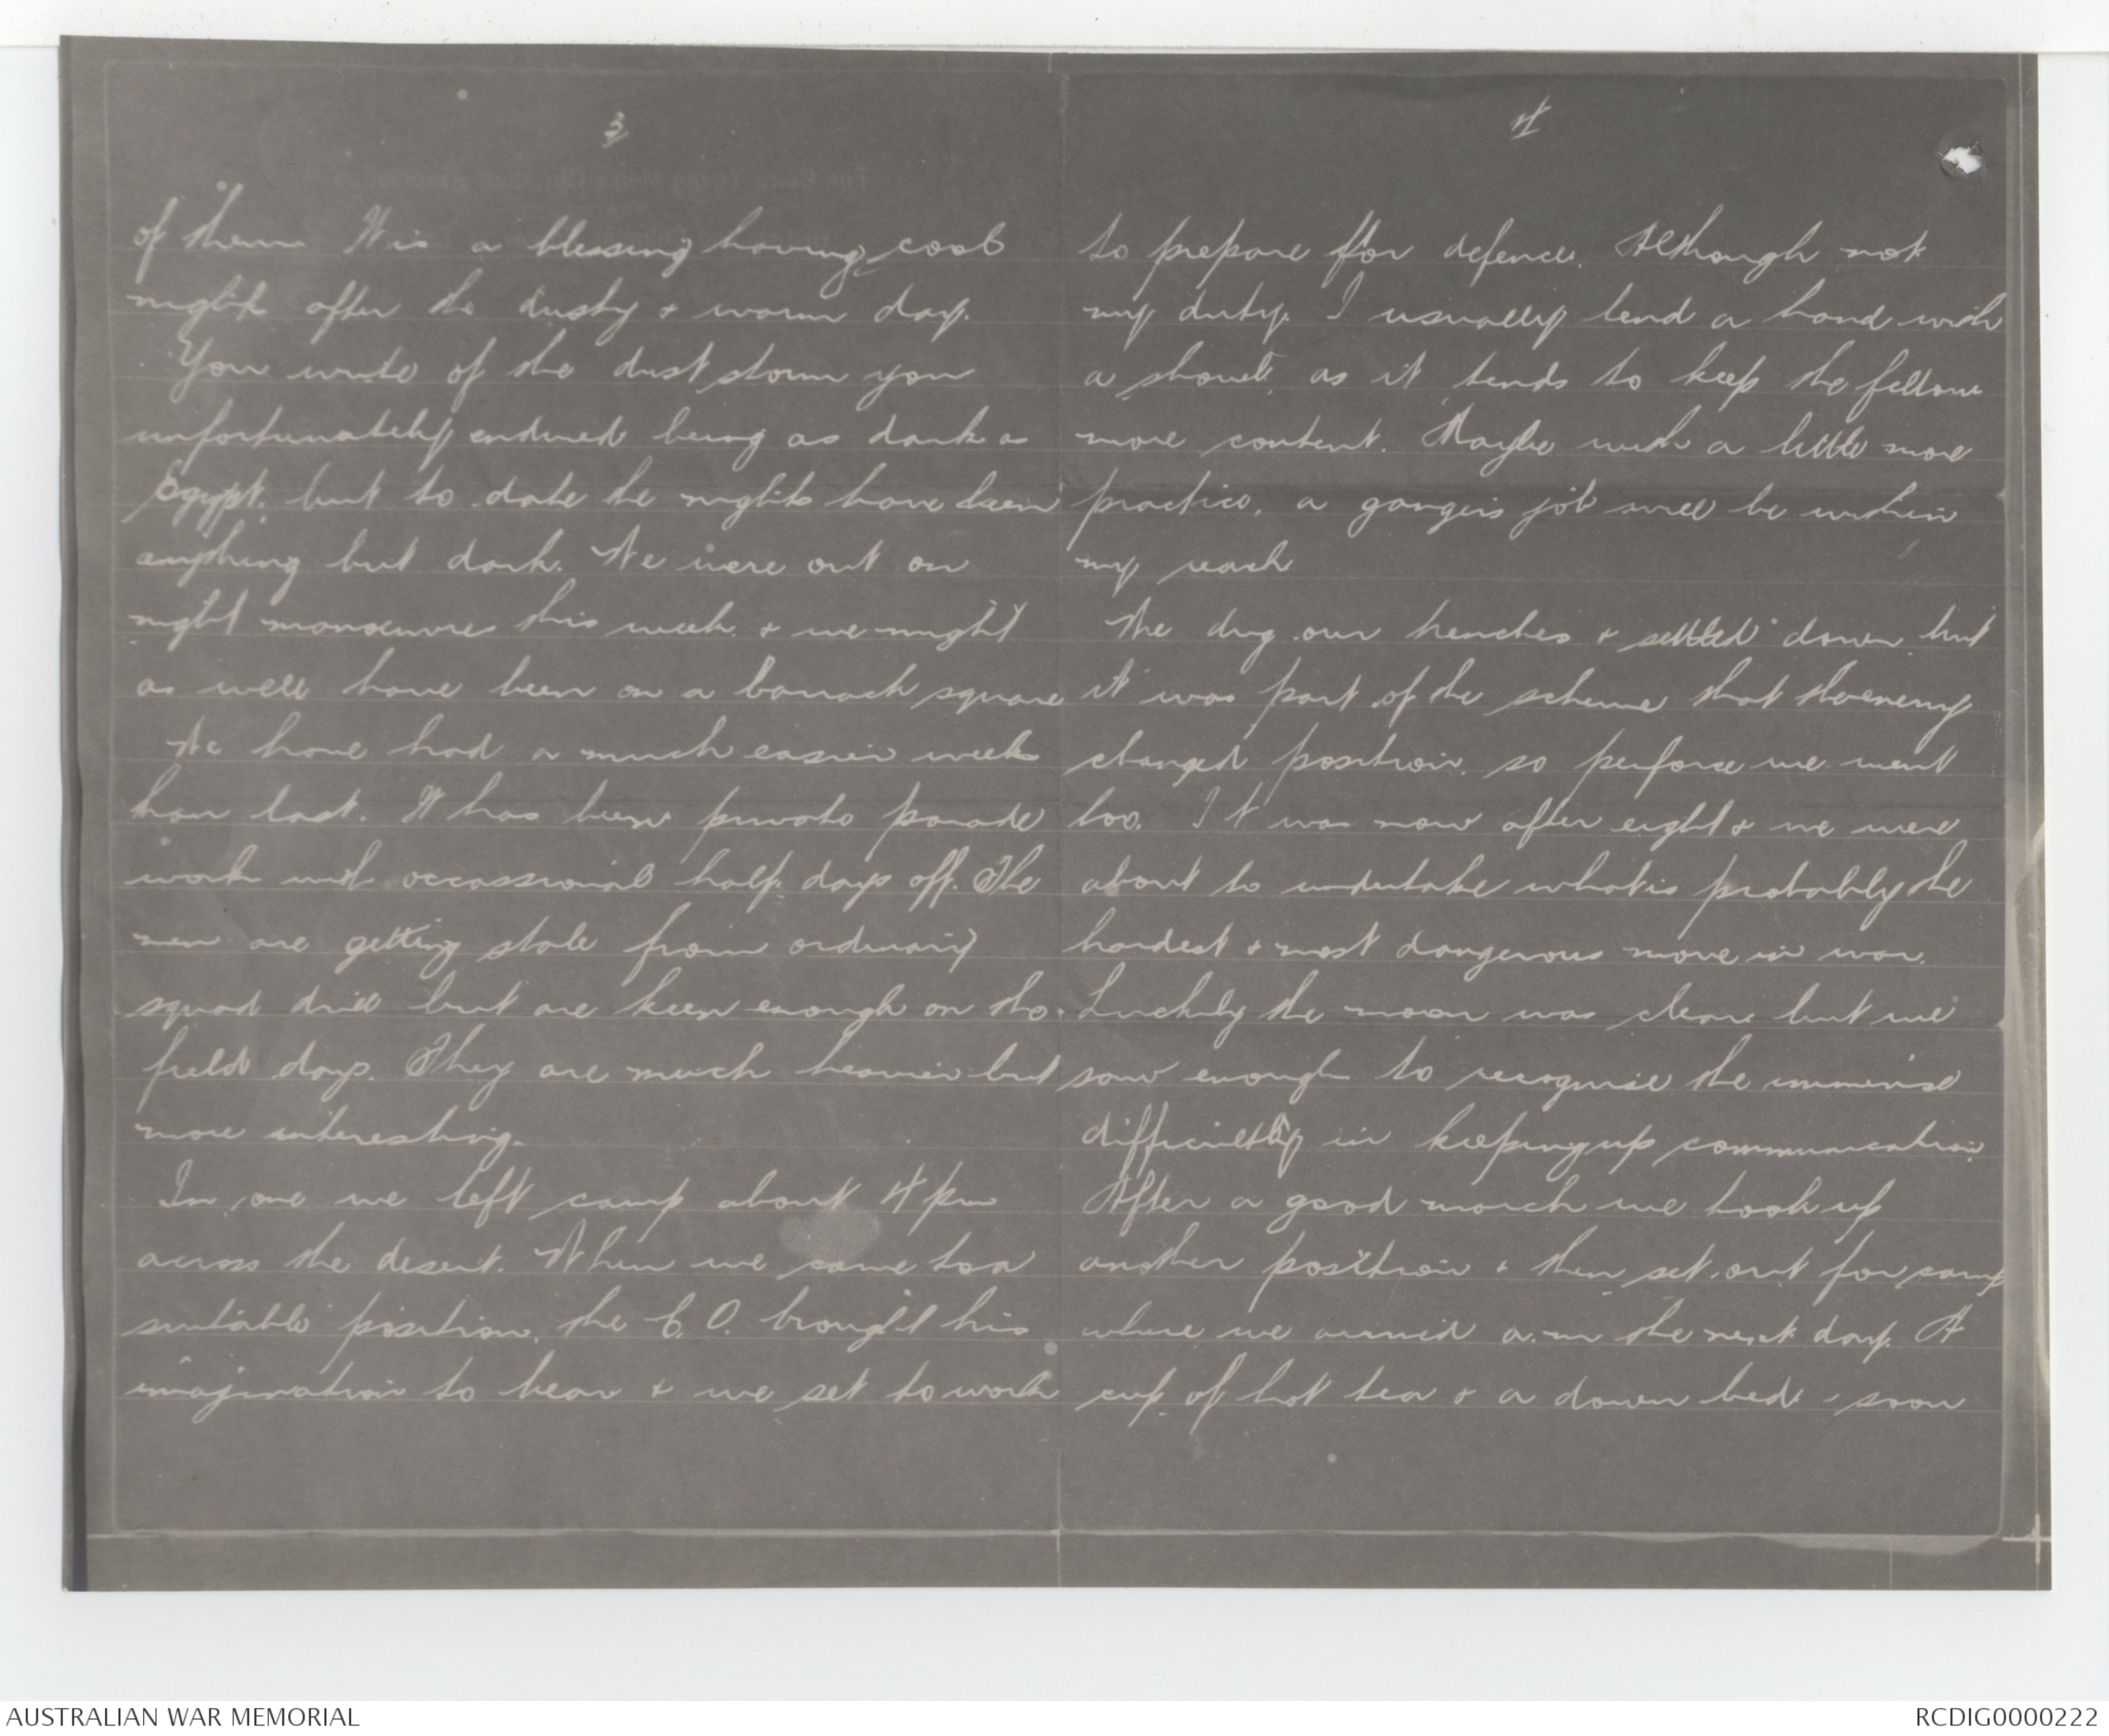 3
of them. It is a blessing having cool
nights after the dusty & warm day.
You write of the dust storm you
unfortunately endured being as dark as
Egypt. but to date the nights have been
anything but dark. We were out on
night manoeuvres this week & we might
as well have been on a barrack square
We have had a much easier week
than last. It has been private parade
work with occassional half days off. The
men are getting stale from ordinary
squad drill but are keen enough on the
field days. They are much heavier but
more interesting.
In one we left camp about 4 pm
across the desert. When we came to a
suitable position, the C.O. brought his
imagination to bear & we set to work
4
to prepare for defence. Although not
my duty. I usually lend a hand with
a shovel as it tends to keep the fellows
more content. Maybe with a little more
practice, a gangers job will be within
my reach
We dug our trenches & settled down but
it was part of the scheme that the enemy
changed position, so perforce we went
too. It was now after eight & we were
about to undertake what is probably the
hardest & most dangerous move in war.
Luckily the moon was clear but we
saw enough to recognise the immense
difficulty in keeping up communication
After a good march we took up
another position & then set out for camp
where we arrived a.m the next day. A
cup of hot tea & a down bed & soon
AUSTRALIAN WAR MEMORIAL
RCDIG0000222